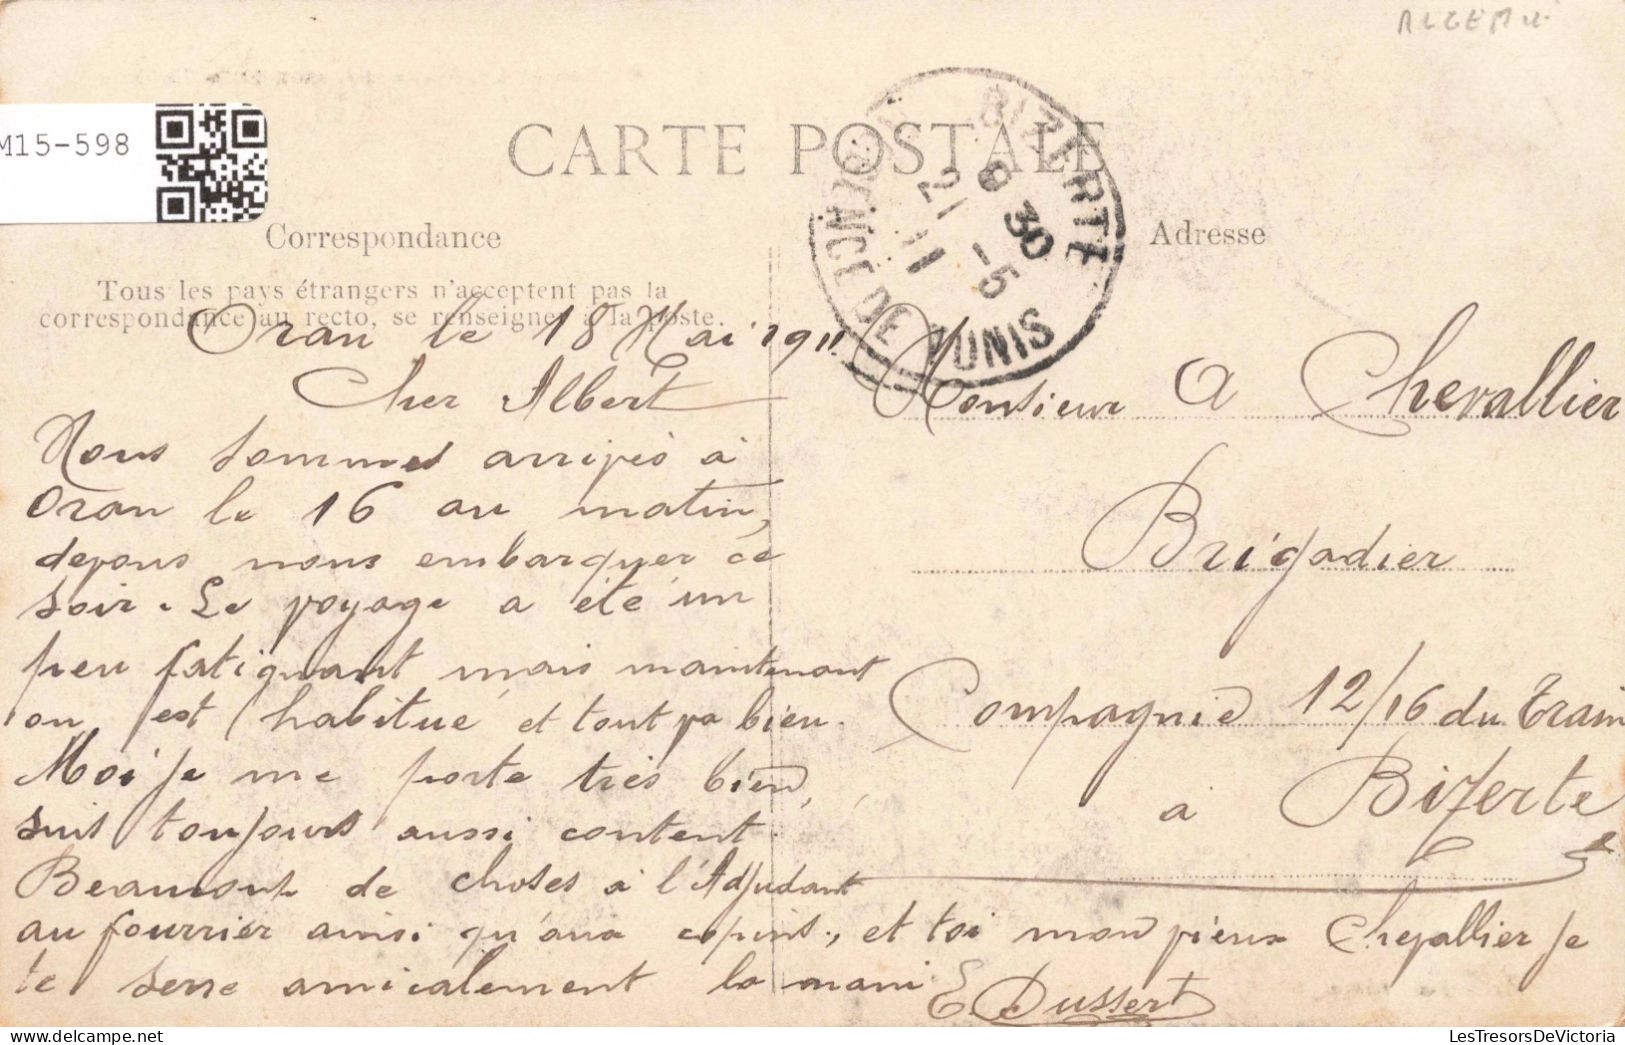 ALGERIE
M15-598
CARTE POSTALE
Correspondance
Adresse
Tous les pays étrangers n'acceptent pas la
correspondance au recto, se renseigner à la poste.
BIZERTE
8 30
21 -5
11
REGENCE DE TUNIS
Oran le 18 Mai 1911
Cher Albert
Nous sommes arrivés à
Oran le 16 au matin,
devons nous embarquer ce
soir. Le voyage a été un
peu fatiguant mais maintenant
on est habitué et tout va bien.
Moi je me porte très bien,
suis toujours aussi content.
Beaucoup de choses à l'Adjudant
au fourrier ainsi qu'aux copins, et toi mon vieux Chevallier je
te serre amicalement la main
E Dussert
Monsieur A Chevallier
Brigadier
Compagnie 12/16 du Train
à Bizerte
LesTresorsDeVictoria